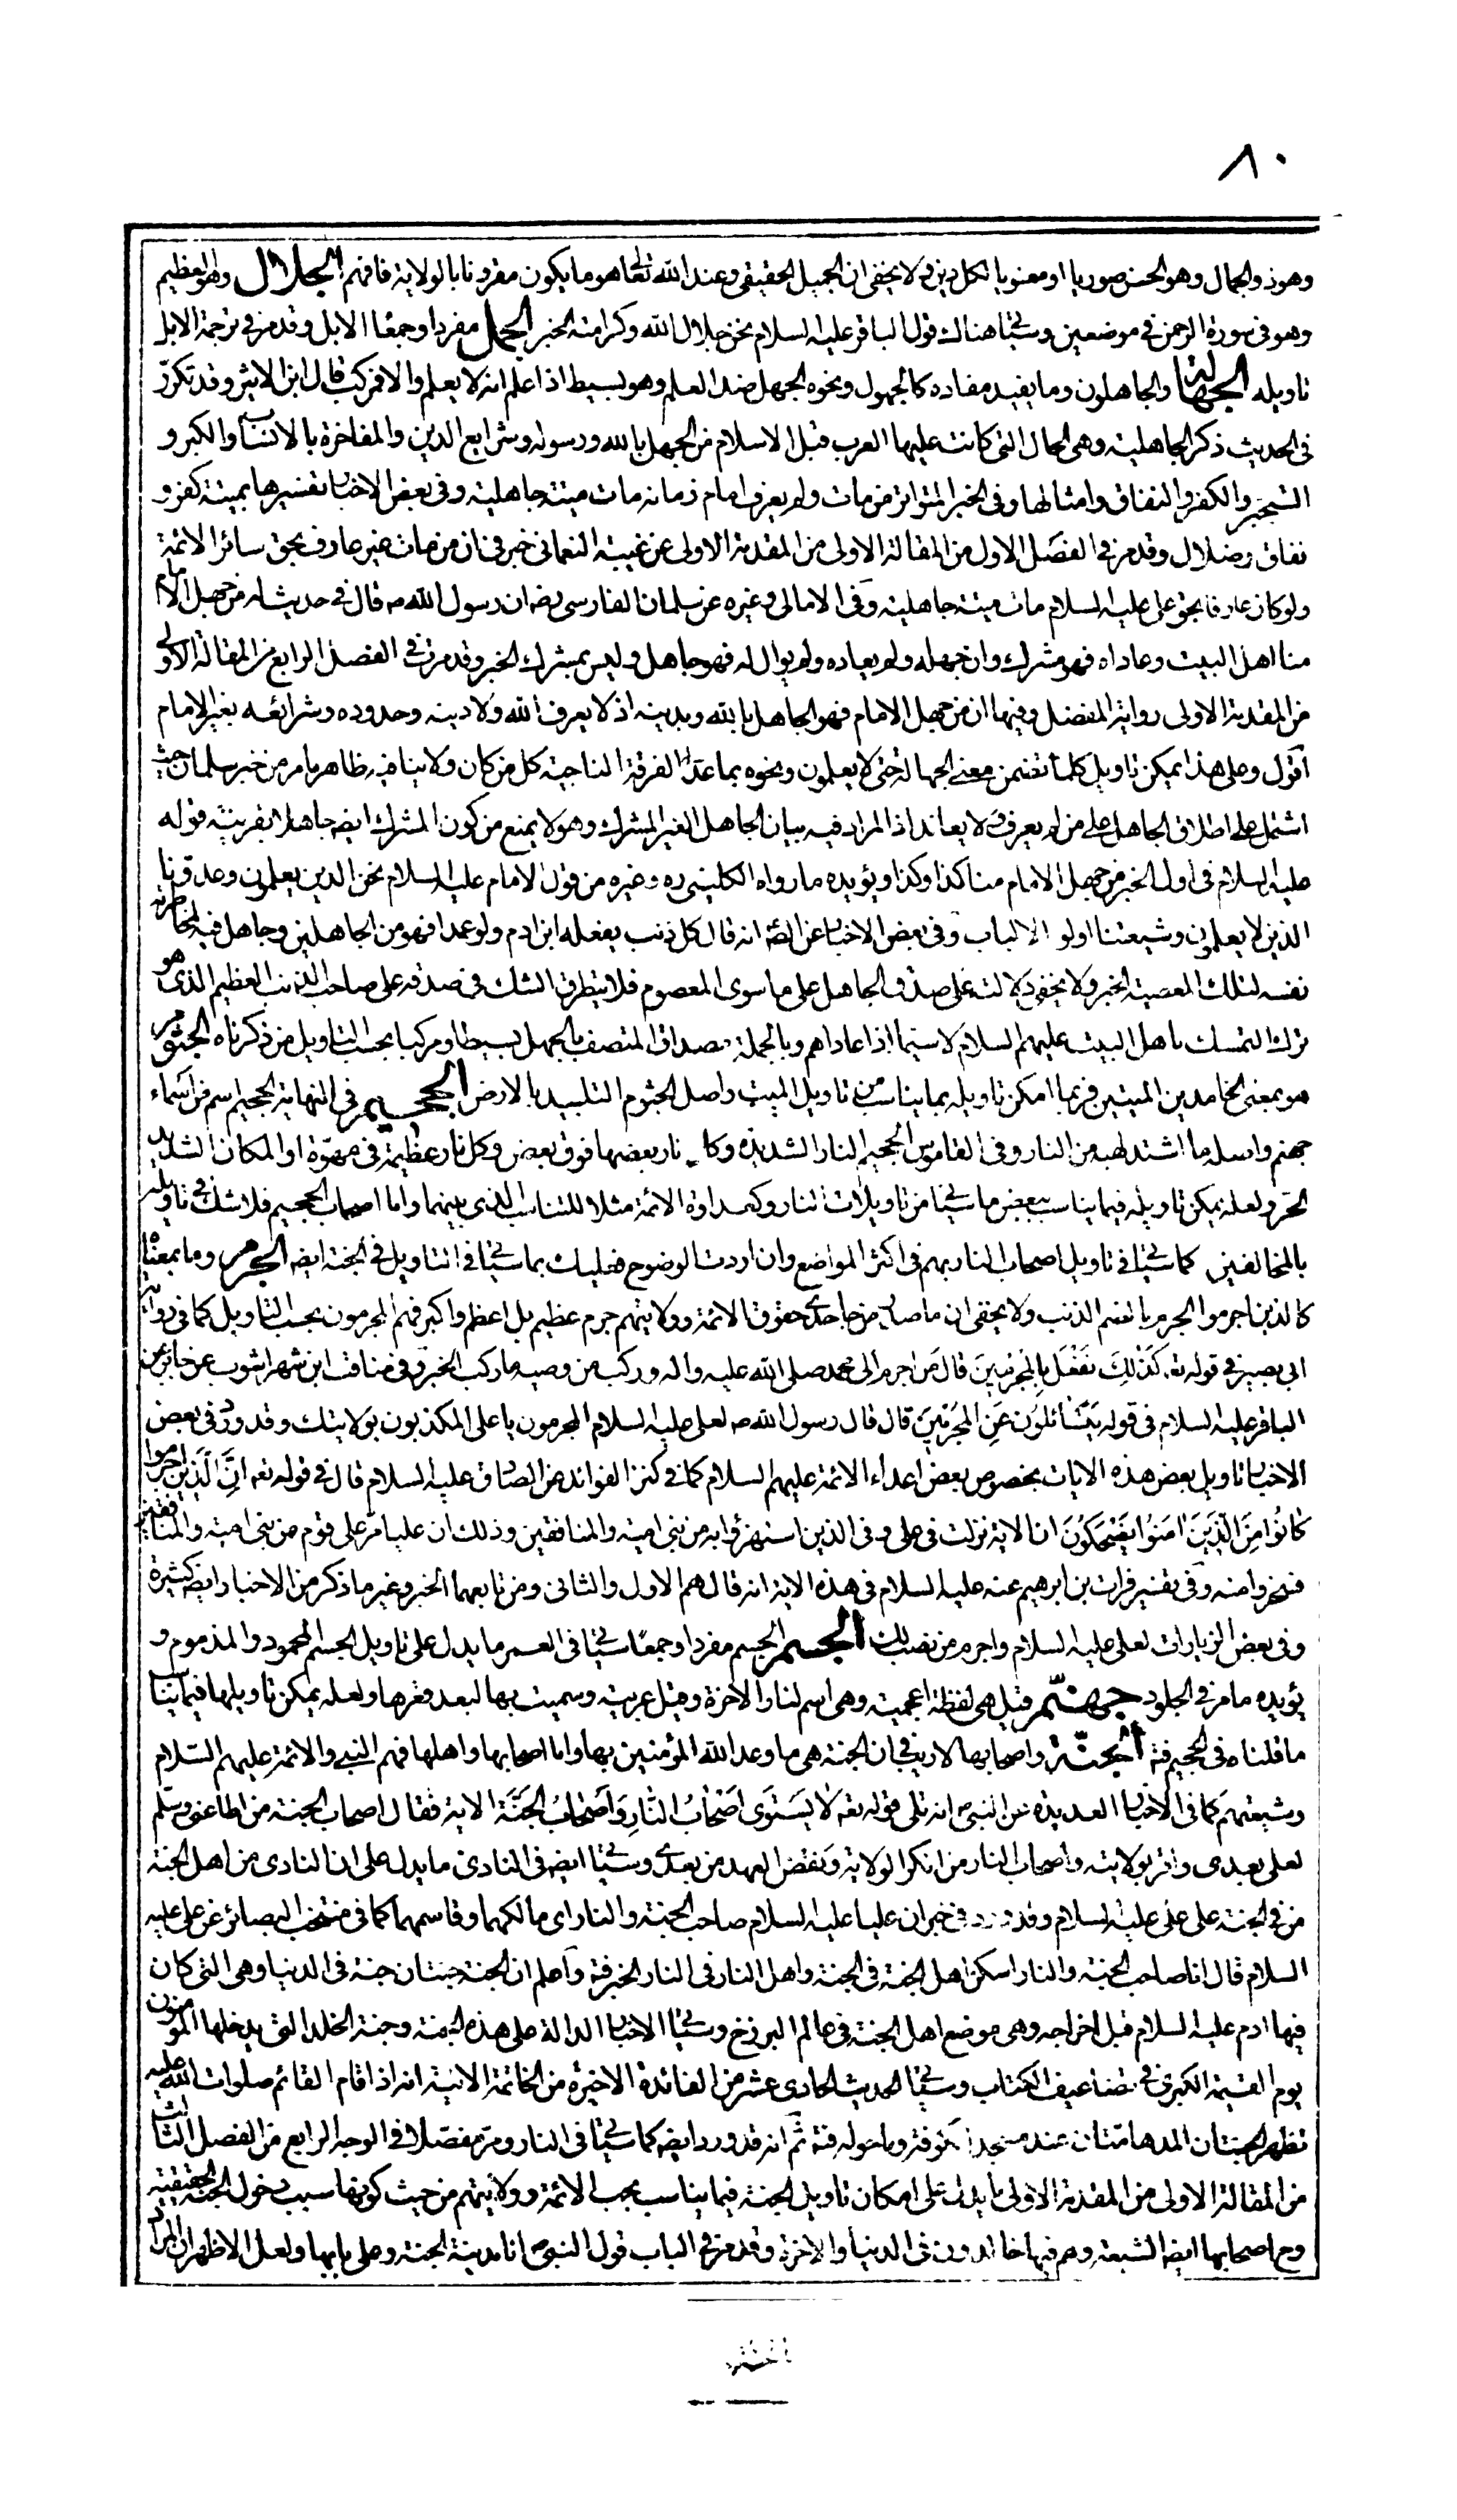 ٨٠
وهو ذو الجمال وهو الحسن صوريا او معنويا لكل ذيروح لا يخفى ان الجميل الحقيقى وعند الله تعالى هو ما يكون مقرونا بالولاية فافهم الجلال وهو العظيم
وهو فى سورة الرحمن فى موضعين وسيأتى هناك قول الباقر عليه السلام نحن جلال الله وكرامته الخبر الجمل مفردا وجمعا الابل وقد مر فى ترجمة الابل
تاويله الجهالة والجاهلون وما يفيد مفاده كالجهول ونحوه الجهل ضد العلم وهو بسيط اذا علم انه لا يعلم والا فمركب قال ابن الاثير وقد تكرر
فى الحديث ذكر الجاهلية وهى الحال التى كانت عليها العرب قبل الاسلام من الجهل بالله ورسوله وشرايع الدين والمفاخرة بالانساب والكبر و
التجبر والكفر والنفاق وامثالها وفى الخبر المتواتر من مات ولم يعرف امام زمانه مات ميتة جاهلية وفى بعض الاخبار تفسيرها بميتة كفر و
نفاق وضلال وقد مر فى الفصل الاول من المقالة الاولى من المقدمة الاولى عن غيبة النعمانى خبر فى ان من مات غير عارف بحق سائر الائمة
ولو كان عارفا بحق على عليه السلام مات ميتة جاهلية وفى الامالى وغيره عن سلمان الفارسى رضه ان رسول الله ص قال فى حديث له من جهل الامام
منا اهل البيت وعاداه فهو مشرك وان جهله ولم يعاده ولم يوال له فهو جاهل وليس بمشرك الخبر وقد مر فى الفصل الرابع من المقالة الاولى
من المقدمة الاولى رواية المفضل وفيها ان من جهل الامام فهو الجاهل بالله وبدينه اذ لا يعرف الله ولا دينه وحدوده وشرائعه بغير الامام
اقول وعلى هذا يمكن تاويل كلما تضمن معنى الجهالة حتى لا يعلمون ونحوه بما عدا الفرقة الناجية كل من كان ولا ينافيه ظاهر ما مر من خبر سلمان حيث
اشتمل على اطلاق الجاهل على من لم يعرف ولا يعاند اذ المراد فيه بيان الجاهل الغير المشرك وهو لا يمنع من كون المشرك ايضه جاهلا بقرينة قوله
عليه السلام فى اول الخبر من جهل الامام منا كذا وكذا ويؤيده ما رواه الكلينى ره وغيره من قول الامام عليه السلام نحن الذين يعلمون وعدونا
الذين لا يعلمون وشيعتنا اولو الالباب وفى بعض الاخبار عن الصة انه قال كل ذنب يفعله ابن ادم ولو عمدا فهو من الجاهلين وجاهل فيه لمخاطرته
نفسه لتلك المعصية الخبر ولا يخفى دلالته على صدق الجاهل على ما سوى المعصوم فلا يتطرق الشك فى صدقه على صاحب الذنب العظيم الذى هو
ترك التمسك باهل البيت عليهم السلام لا سيما اذا عاداهم وبالجملة مصداق المتصف بالجهل بسيطا ومركبا بحسب التاويل من ذكرناه الجثوم
هو بمعنى الخامدين الميتين فربما امكن تاويله بما يناسب من تاويل الميت واصل الجثوم التلبيد بالارض الجحيم فى النهاية الجحيم اسم من اسماء
جهنم واصله ما اشتد لهبه من النار وفى القاموس الجحيم النار الشديدة وكل نار بعضها فوق بعض وكل نار عظيمة فى مهوّة او المكان الشديد
الحر ولعله يمكن تاويله فيما يناسب ببعض ما سيأتى من تاويلات النار وكعداوة الائمة مثلا للتناسب الذى بينهما واما اصحاب الجحيم فلا شك فى تاويله
بالمخالفين كما سيأتى فى تاويل اصحاب النار بهم فى اكثر المواضع وان اردت الوضوح فعليك بما سيأتى فى التاويل فى الجنة ايضه الجرم وما بمعناه
كالذين اجرموا الجرم بالضم الذنب ولا يخفى ان ما صار من جاحدى حقوق الائمة وولايتهم جرم عظيم بل اعظم واكبر فهم المجرمون بحسب التاويل كما فى رواية
ابى بصير فى قوله تع كَذلِكَ نَفْعَلُ بِالْمُجْرِمِينَ قال مَن اجرم الى محمد صلى الله عليه واله وركب من وصيه ما ركب الخبر وفى مناقب ابن شهراشوب عن جابر عن
الباقر عليه السلام فى قوله يَتَسَائَلُونَ عَنِ الْمُجْرِمِينَ قال قال رسول الله ص لعلى عليه السلام المجرمون يا على المكذبون بولايتك وقد ورد فى بعض
الاخبار تاويل بعض هذه الايات بخصوص بعض اعداء الائمة عليهم السلام كما فى كنز الفوائد عن الصادق عليه السلام قال فى قوله تعه اِنَّ الَّذينَ اجرموا
كانُوا مِنَ الَّذينَ امَنُوا يَضْحَكُونَ ان الاية نزلت فى على وفى الذين استهزؤا به من بنى امية والمنافقين وذلك ان عليا مر على قوم من بنى امية والمنافقين
فسخروا منه وفى تفسير فرات بن ابرهيم عنه عليه السلام فى هذه الاية انه قال هم الاول والثانى ومن تابعهما الخبر وغير ما ذكر من الاخبار ايضه كثيرة
وفى بعض الزيارات لعلى عليه السلام واجرم من نصب لك الجسم الجسم مفردا وجمعا سيأتى فى العسر ما يدل على تاويل الجسم المحمود والمذموم و
يؤيده ما مر فى الجلود جهنّم قيل هى لفظة اعجمية وهى اسم لنار الاخرة وقيل عربية وسميت بها لبعد قعرها ولعله يمكن تاويلها فيما يناسب
ما قلناه فى الجحيم فته الجنّة واصحابها لا ريب فى ان الجنة هى ما وعد الله المؤمنين بها واما اصحابها واهلها فهم النبى والائمة عليهم السلام
وشيعتهم كما فى الاخبار العديدة عن النبى ص انه تلى قوله تعه لا يَسْتَوى اَصْحابُ النّارِ وَاَصْحابُ الْجَنَّةِ الاية فقال اصحاب الجنة من اطاعنى وسلم
لعلى بعدى واقر بولايته واصحاب النار من انكر الولاية ونقض العهد من بعدى وسيأتى ايضه فى النادى ما يدل على ان النادى من اهل الجنة
من فى الجنة على على عليه السلام وقد ورد فى خبر ان عليا عليه السلام صاحب الجنة والنار اى مالكهما وقاسمهما كما فى منتخب البصائر عن على عليه
السلام قال انا صاحب الجنة والنار اسكن اهل الجنة فى الجنة واهل النار فى النار الخبر فته واعلم ان الجنة جنتان جنة فى الدنيا وهى التى كان
فيها ادم عليه السلام قبل اخراجه وهى موضع اهل الجنة فى عالم البرزخ وسيأتى الاخبار الدالة على هذه الجنة وجنة الخلد التى يدخلها المؤمنون
يوم القيمة الكبرى فى تضاعيف الكتاب وسيأتى الحديث الحادى عشر من الفائدة الاخيرة من الخاتمة الاتية انه اذا قام القائم صلوات الله عليه
تظهر الجنتان المدهامتان عند مسجد الكوفة وما حوله فته ثم انه قد ورد ايضه كما سيأتى فى النار ومر مفصلا فى الوجه الرابع من الفصل الثالث
من المقالة الاولى من المقدمة الاولى ما يدل على امكان تاويل الجنة فيما يناسب بحب الائمة وولايتهم من حيث كونها سبب دخول الجنة الحقيقية
وح اصحابها ايضه الشيعة وهم فيها خالدون فى الدنيا والاخرة وقد مر فى الباب قول النبى ص انا مدينة الجنة وعلى بابها ولعل الاظهر ان المراد